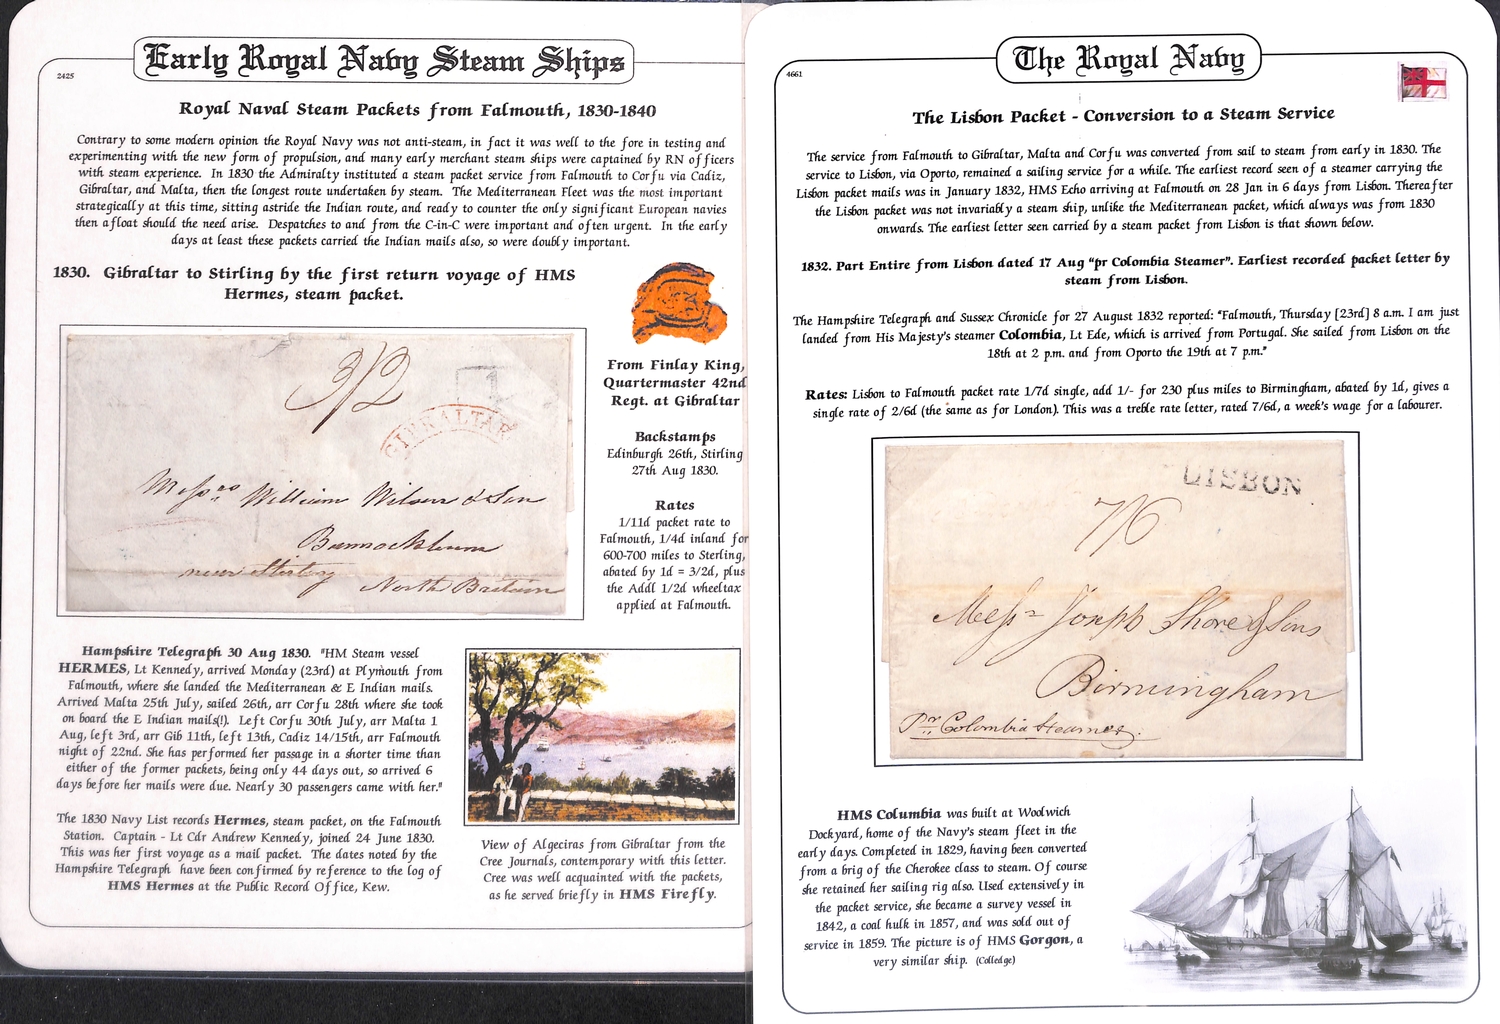 Early Royal Navy Steam Ships
2425
Royal Naval Steam Packets from Falmouth, 1830-1840
Contrary to some modern opinion the Royal Navy was not anti-steam, in fact it was well to the fore in testing and
experimenting with the new form of propulsion, and many early merchant steam ships were captained by RN officers
with steam experience. In 1830 the Admiralty instituted a steam packet service from Falmouth to Corfu via Cadiz,
Gibraltar, and Malta, then the longest route undertaken by steam. The Mediterranean Fleet was the most important
strategically at this time, sitting astride the Indian route, and ready to counter the only significant European navies
then afloat should the need arise. Despatches to and from the C-in-C were important and often urgent. In the early
days at least these packets carried the Indian mails also, so were doubly important.
1830. Gibraltar to Stirling by the first return voyage of HMS
Hermes, steam packet.
3/2
1
GIBRALTAR
Messrs William Wilson & Son
Bannockburn
near Stirling
North Britain
From Finlay King,
Quartermaster 42nd
Regt. at Gibraltar
Backstamps
Edinburgh 26th, Stirling
27th Aug 1830.
Rates
1/11d packet rate to
Falmouth, 1/4d inland for
600-700 miles to Sterling,
abated by 1d = 3/2d, plus
the Addl 1/2d wheeltax
applied at Falmouth.
Hampshire Telegraph 30 Aug 1830. "HM Steam vessel
HERMES, Lt Kennedy, arrived Monday (23rd) at Plymouth from
Falmouth, where she landed the Mediterranean & E Indian mails.
Arrived Malta 25th July, sailed 26th, arr Corfu 28th where she took
on board the E Indian mails(!). Left Corfu 30th July, arr Malta 1
Aug, left 3rd, arr Gib 11th, left 13th, Cadiz 14/15th, arr Falmouth
night of 22nd. She has performed her passage in a shorter time than
either of the former packets, being only 44 days out, so arrived 6
days before her mails were due. Nearly 30 passengers came with her."
The 1830 Navy List records Hermes, steam packet, on the Falmouth
Station. Captain - Lt Cdr Andrew Kennedy, joined 24 June 1830.
This was her first voyage as a mail packet. The dates noted by the
Hampshire Telegraph have been confirmed by reference to the log of
HMS Hermes at the Public Record Office, Kew.
View of Algeciras from Gibraltar from the
Cree Journals, contemporary with this letter.
Cree was well acquainted with the packets,
as he served briefly in HMS Firefly.
The Royal Navy
4661
The Lisbon Packet - Conversion to a Steam Service
The service from Falmouth to Gibraltar, Malta and Corfu was converted from sail to steam from early in 1830. The
service to Lisbon, via Oporto, remained a sailing service for a while. The earliest record seen of a steamer carrying the
Lisbon packet mails was in January 1832, HMS Echo arriving at Falmouth on 28 Jan in 6 days from Lisbon. Thereafter
the Lisbon packet was not invariably a steam ship, unlike the Mediterranean packet, which always was from 1830
onwards. The earliest letter seen carried by a steam packet from Lisbon is that shown below.
1832. Part Entire from Lisbon dated 17 Aug "pr Colombia Steamer". Earliest recorded packet letter by
steam from Lisbon.
The Hampshire Telegraph and Sussex Chronicle for 27 August 1832 reported: "Falmouth, Thursday [23rd] 8 a.m. I am just
landed from His Majesty's steamer Colombia, Lt Ede, which is arrived from Portugal. She sailed from Lisbon on the
18th at 2 p.m. and from Oporto the 19th at 7 p.m."
Rates: Lisbon to Falmouth packet rate 1/7d single, add 1/- for 230 plus miles to Birmingham, abated by 1d, gives a
single rate of 2/6d (the same as for London). This was a treble rate letter, rated 7/6d, a week's wage for a labourer.
LISBON
7/6
Messrs Joseph Shore & Sons
Birmingham
Pr Colombia Steamer.
HMS Columbia was built at Woolwich
Dockyard, home of the Navy's steam fleet in the
early days. Completed in 1829, having been converted
from a brig of the Cherokee class to steam. Of course
she retained her sailing rig also. Used extensively in
the packet service, she became a survey vessel in
1842, a coal hulk in 1857, and was sold out of
service in 1859. The picture is of HMS Gorgon, a
very similar ship. (Colledge)